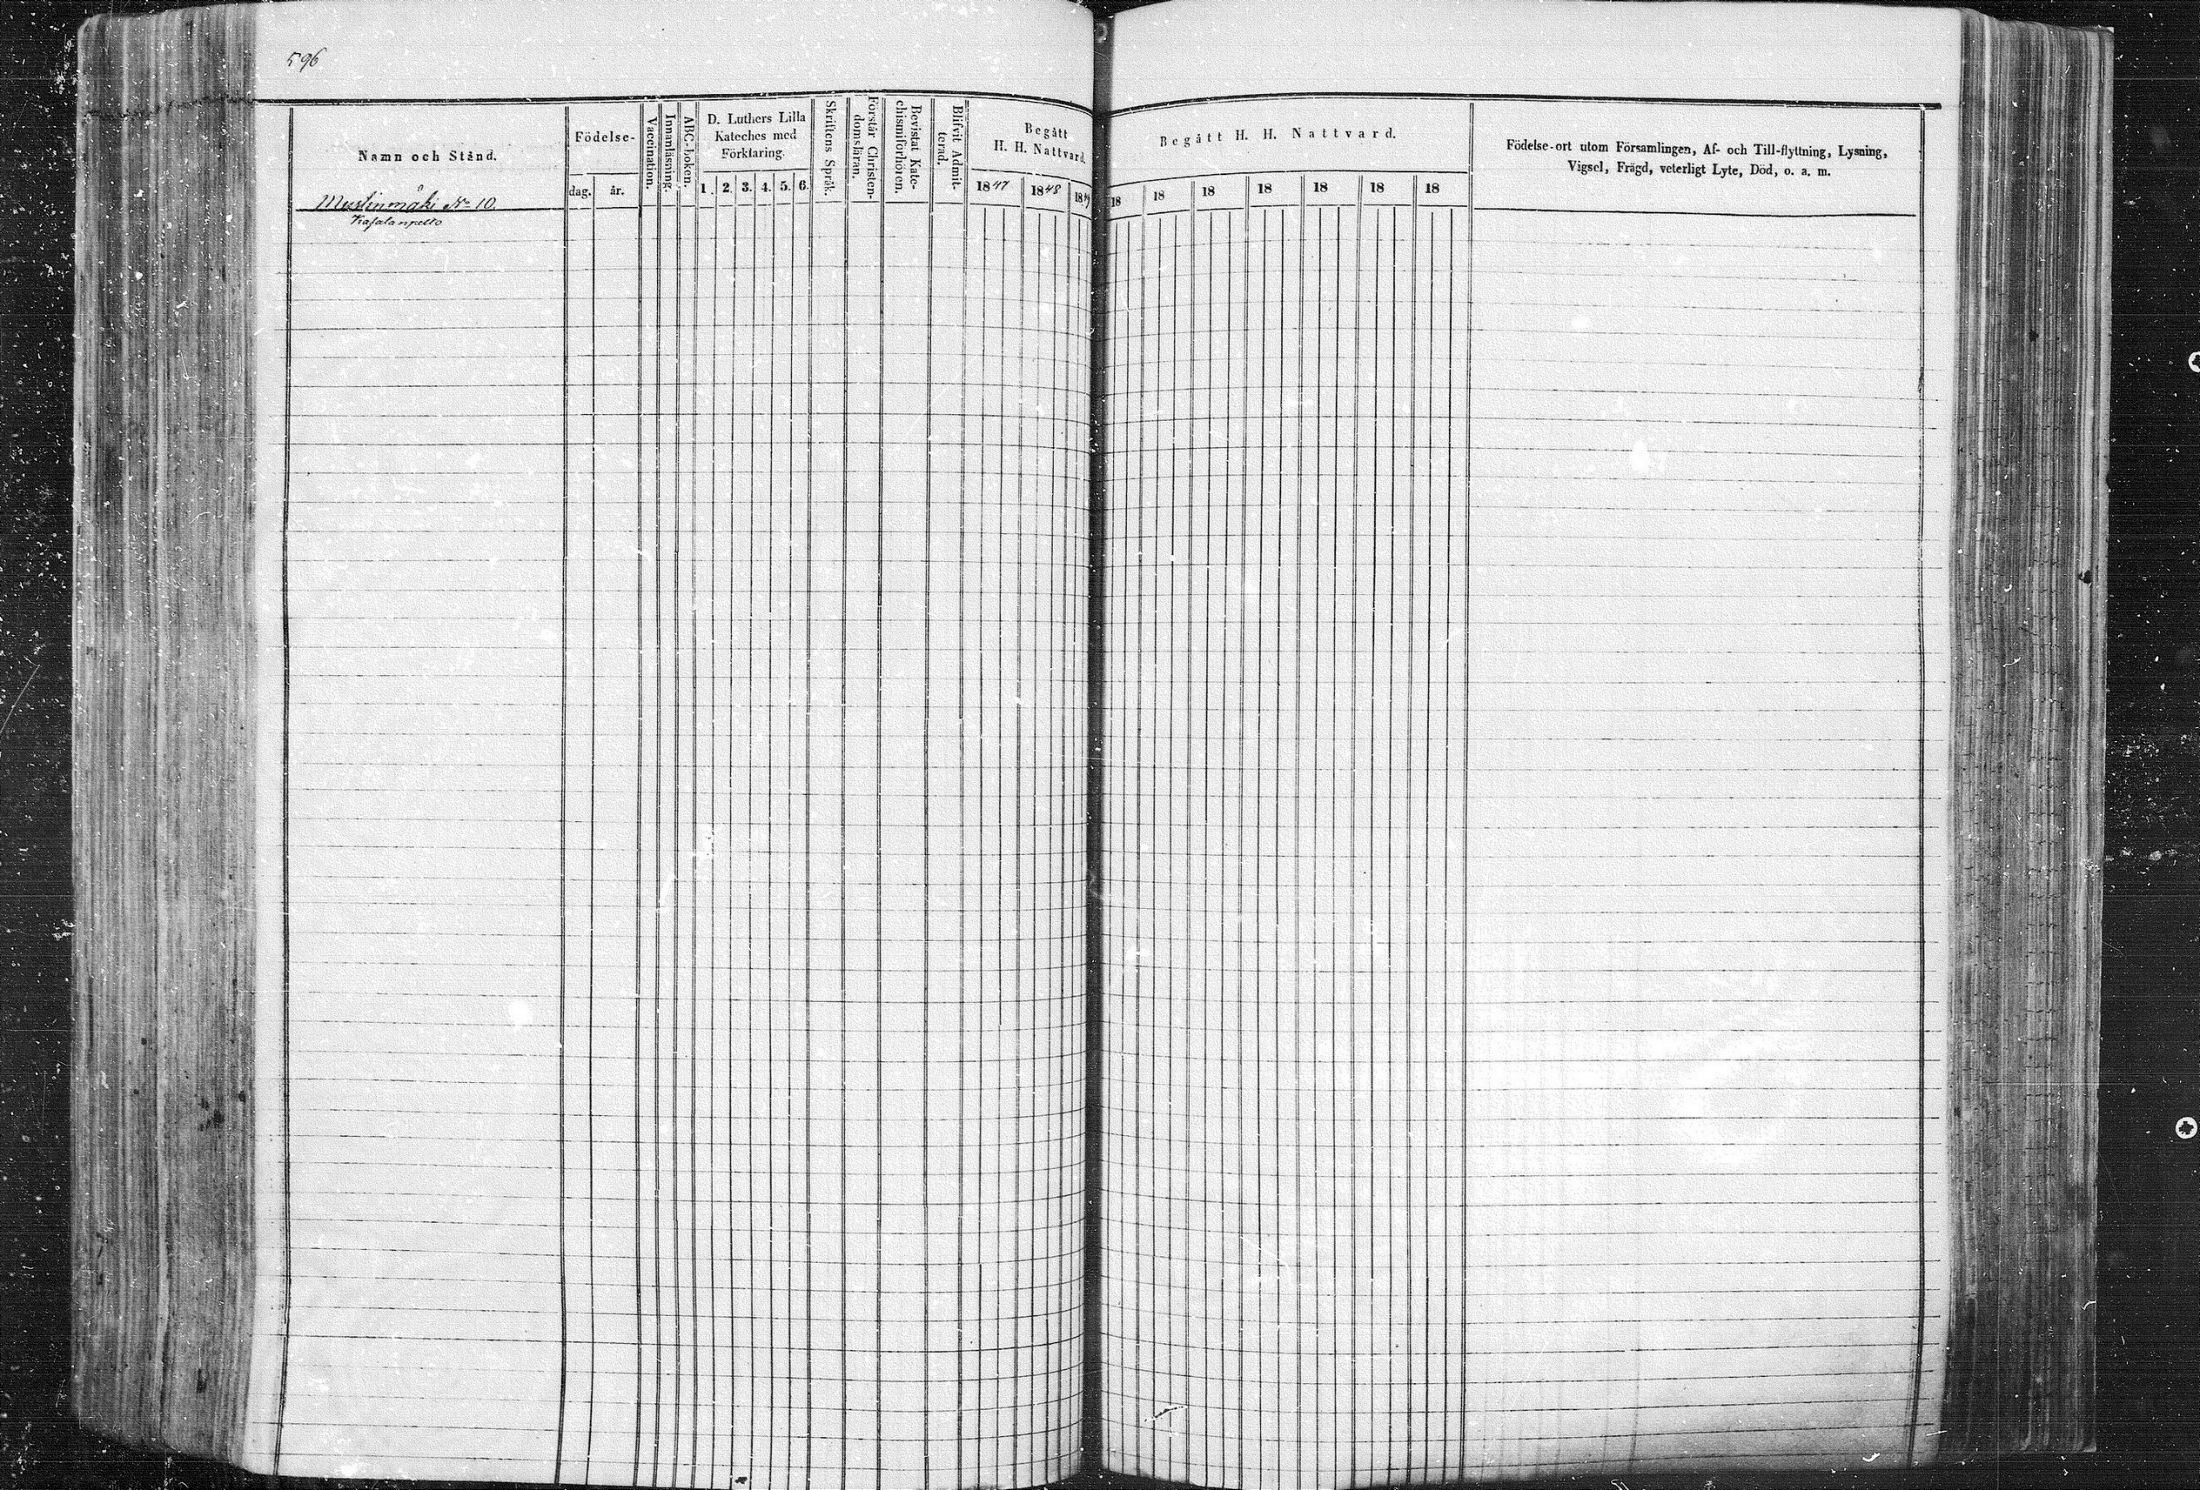 596
Namn och Stånd.
Födelse-
dag.
år.
Vaccination.
Innanläsning.
ABC-boken.
D. Luthers Lilla
Kateches med
Förklaring.
1. 2. 3. 4. 5. 6.
Skriftens Språk.
Förstår Christen-
domsläran.
Bevistat Kate-
chismiförhören.
Blifvit Admit-
terad.
Begått
H. H. Nattvard.
1847 1848 1849
Begått H. H. Nattvard.
18 18 18 18 18 18 18
Födelse-ort utom Församlingen, Af- och Till-flyttning, Lysning,
Vigsel, Frägd, veterligt Lyte, Död, o. a. m.
Mustinmäki No 10.